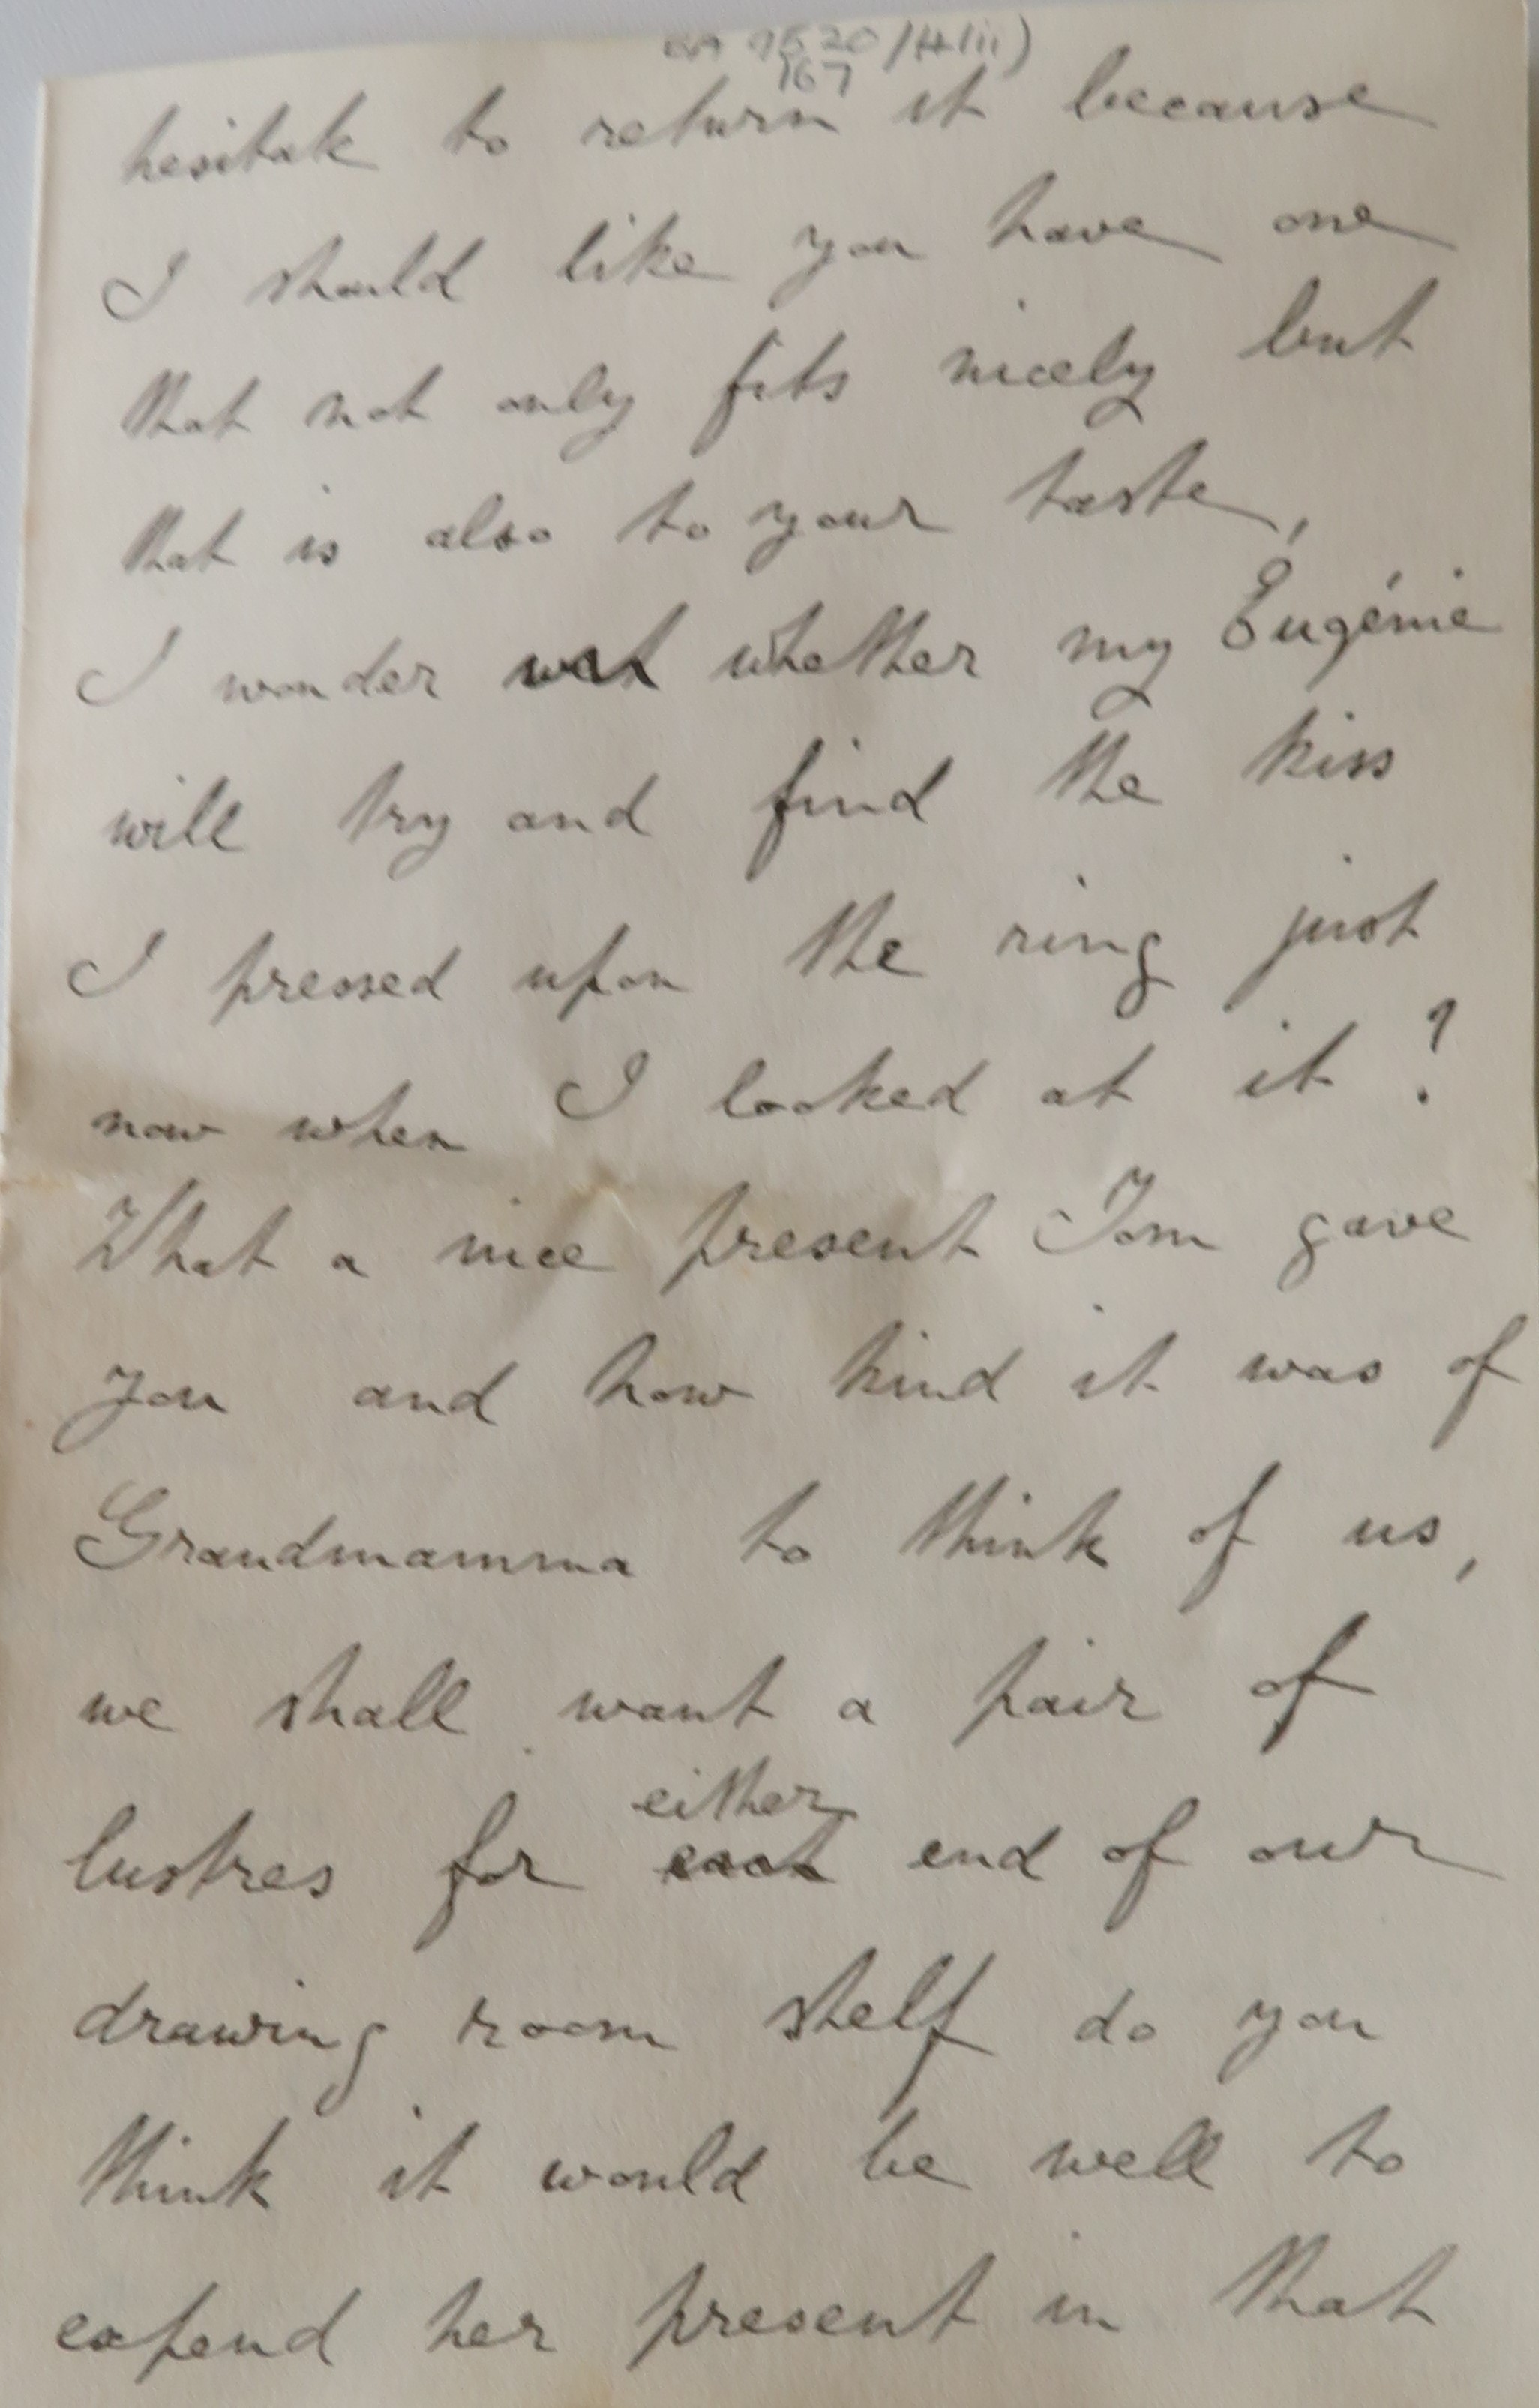 167
hesitate to return it because
I should like you have one
that not only fits nicely but
that is also to your taste,
I wonder whether my Eugénie
will try and find the kiss
I pressed upon the ring just
now when I looked at it?
What a nice present Tom gave
you and how kind it was of
Grandmamma to think of us,
we shall want a pair of
either
lustres for each end of our
drawing room shelf do you
think it would be well to
expend her present in that